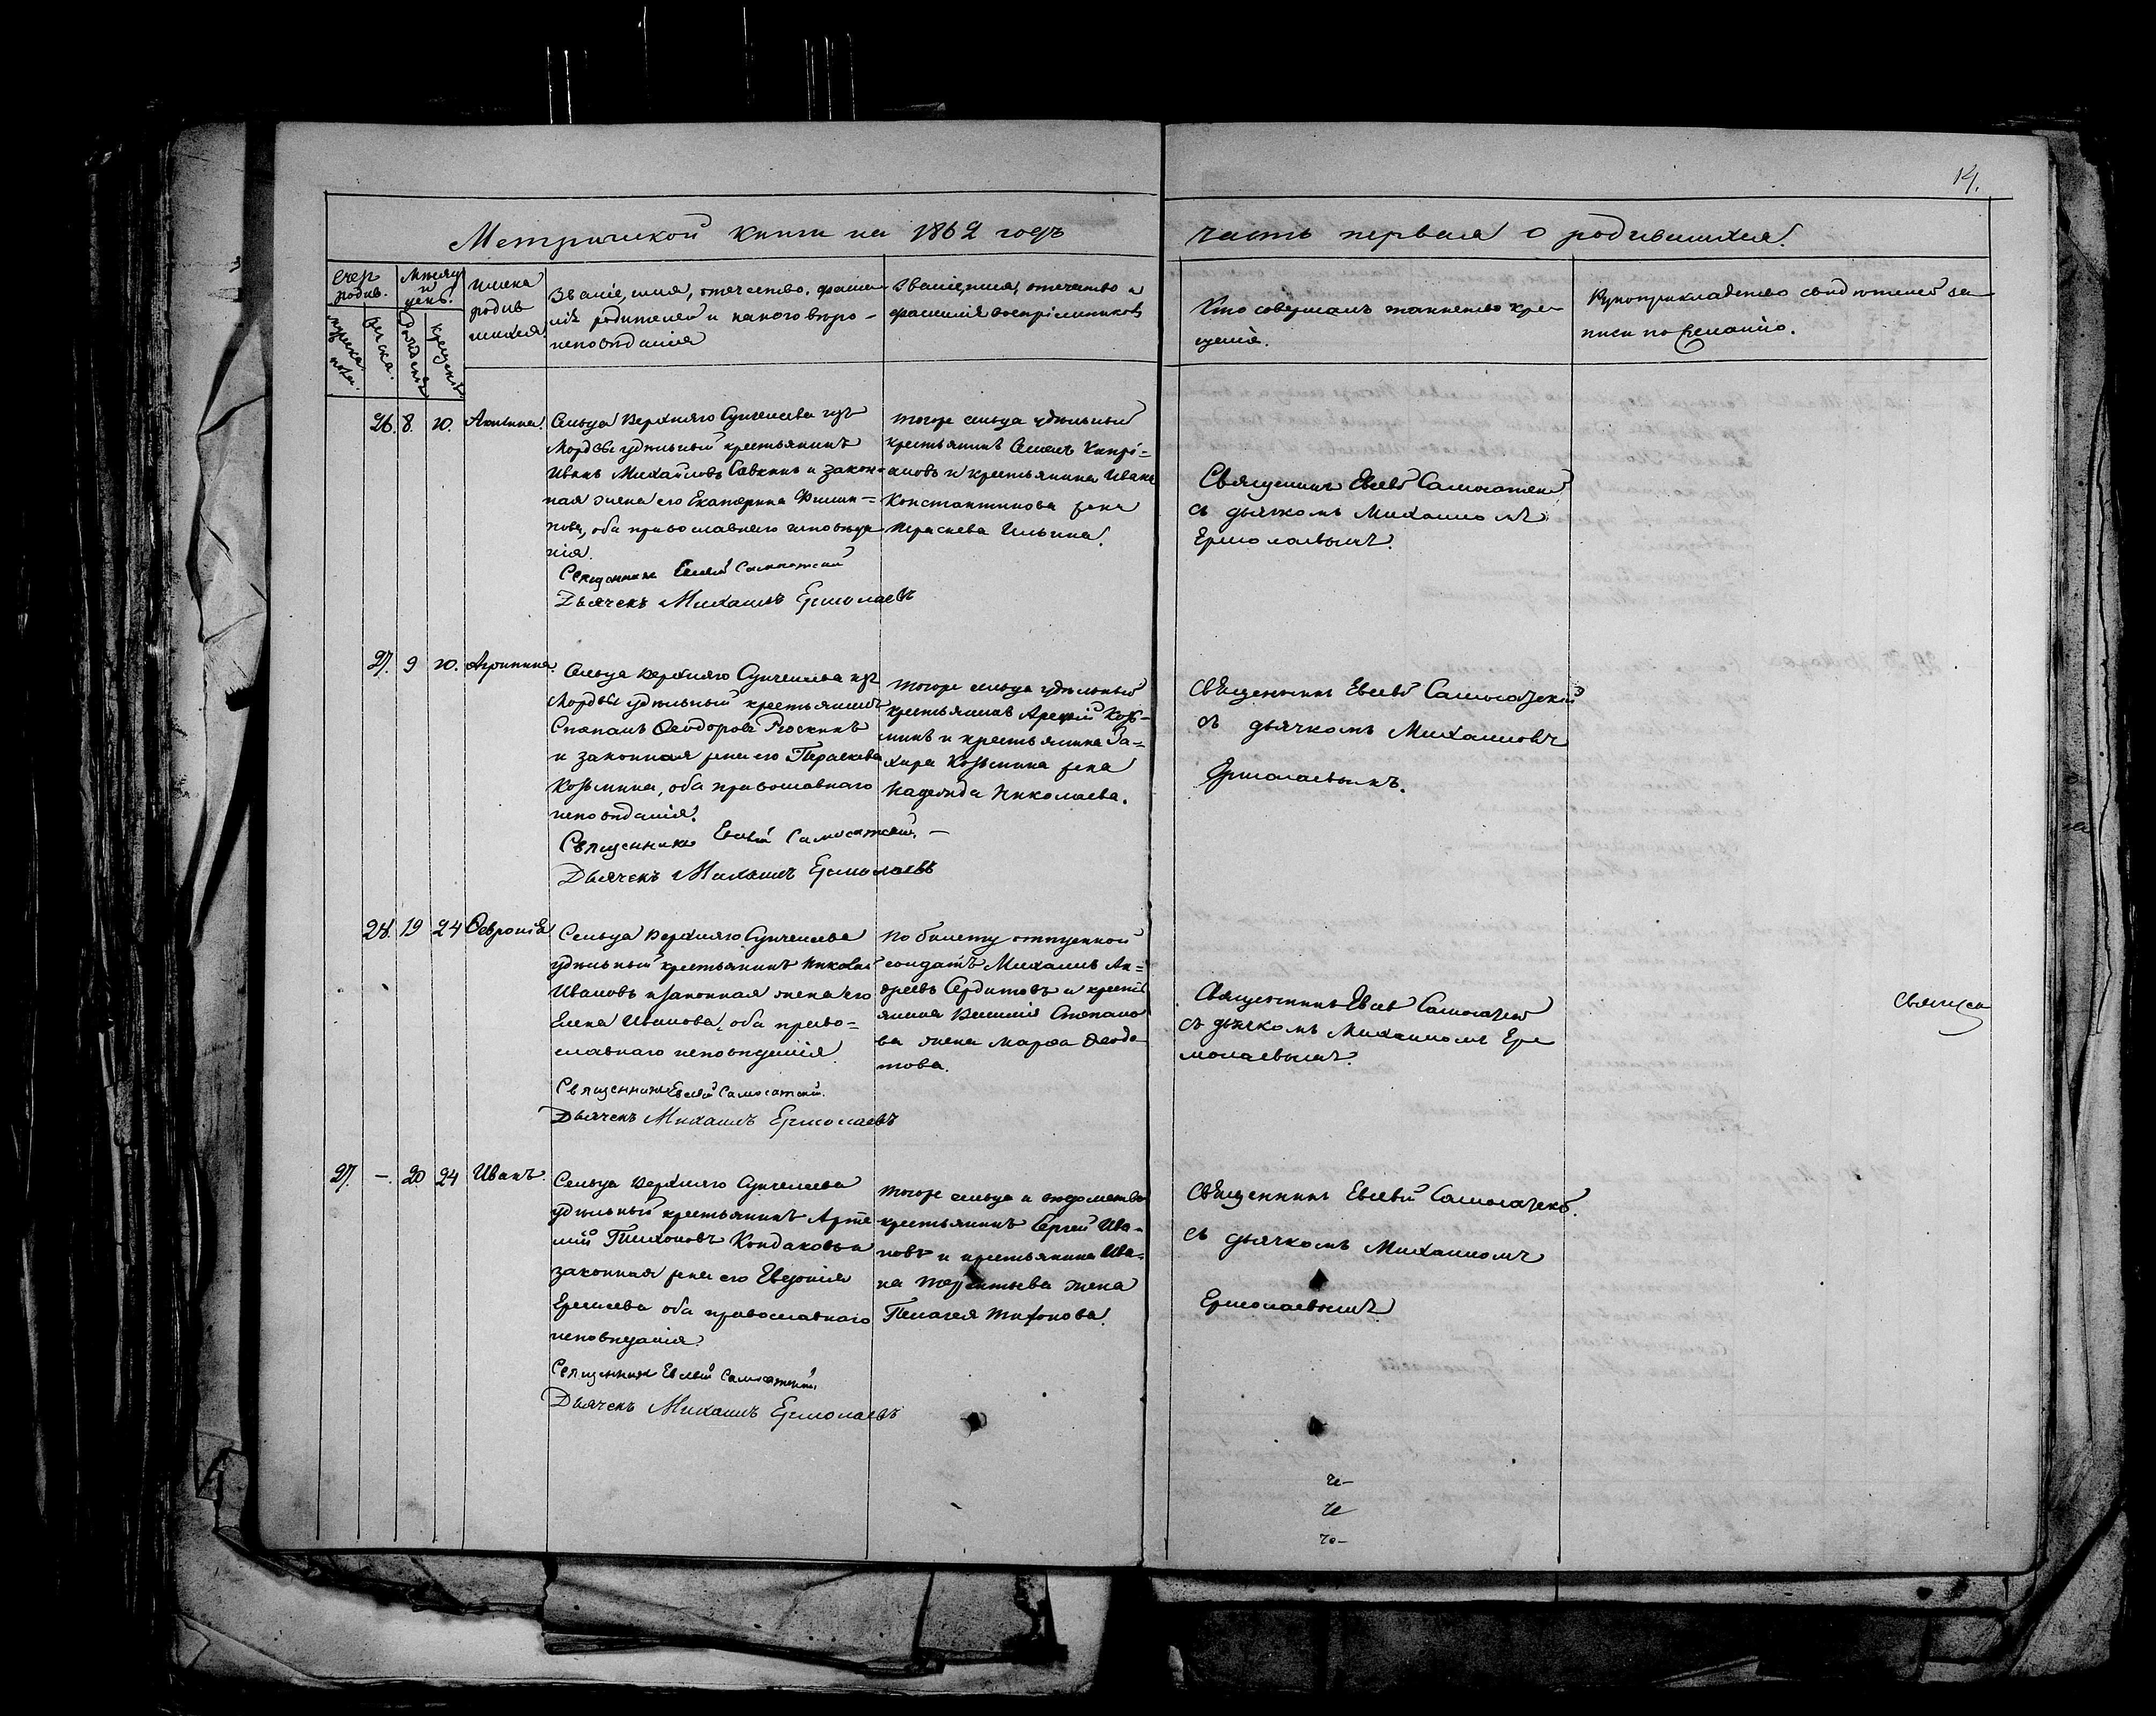 14.
Метрической книги на 1862 годъ
часть первая о родившихся.
Счет родив.
Мѣсяц и день.
Имена родив шихся
Званіе, имя, отечество, фами-
лія родителей и какого вѣро-
исповѣданія
Званіе, имя, отечество и
фамилія воспріемниковъ
Кто совершалъ таинство кре-
щенія.
Рукоприкладство свидѣтелей за-
писи по желанію.
Мужеска пола.
Женска.
Рожденія
Крещенія
26. 8. 10. Акилина.
Сельца Верхняго Сунчелеева изъ
Мордвы удѣльный крестьянинъ
Иванъ Михайловъ Савкинъ и закон-
ная жена его Екатерина Филип=
пова, оба православнаго исповѣда
нія.
Священник Евсевій Самосатский
Дьячекъ Михаилъ Ермолаевъ
тогоже сельца удѣльный
крестьянинъ Семенъ Кипрі=
ановъ и крестьянина Ивана
Константинова жена
Параскева Ильина.
Священникъ Евсевій Самосатскій
съ дьячкомъ Михаиломъ
Ермолаевымъ.
27. 9 10. Агрипина.
Сельца Верхняго Сунчелеева изъ
Мордвы удѣльный крестьянинъ
Степанъ Ѳеодоровъ
и законная жена его Параскева
Козьмина, оба православнаго
исповѣданія.
Священник Евсевій Самосатский.
Дьячекъ Михаилъ Ермолаевъ
тогоже сельца удѣльный
крестьянинъ Арефій Козь-
минъ и крестьянина За=
хара Козьмина жена
Надежда Николаева.
Священникъ Евсевій Самосатскій
съ дьячкомъ Михаиломъ
Ермолаевымъ.
28. 19 24 Ѳевронія
Сельца Верхняго Сунчелеева
удѣльный крестьянинъ Николай
Ивановъ и законная жена его
Елена Иванова, оба право=
славнаго исповѣданія.
Священник Евсевій Самосатский.
Дьячекъ Михаилъ Ермолаевъ
По билету отпускной
солдатъ Михаилъ Ан=
дреевъ Сердитовъ и кресть
янина Василія Степано
ва жена Марѳа Ѳедо
това.
Священникъ Евсевій Самосатскій
съ дьячкомъ Михаиломъ Ер
молаевымъ.
27. - 20 24 Иванъ.
Сельца Верхняго Сунчелеева
удѣльный крестьянинъ Арте
мій Тихоновъ Кондаковъ и
законная жена его Евдокія
Еремеева оба православнаго
исповѣданія.
Священник Евсевій Самосатский
Дьячекъ Михаилъ Ермолаевъ
тогоже сельца и ведомства
крестьянинъ Сергей Ива-
новъ и крестьянина Ива-
на Терентьева жена
Пелагея Тихонова.
Священникъ Евсевій Самосатскій.
съ дьячкомъ Михаиломъ
Ермолаевымъ